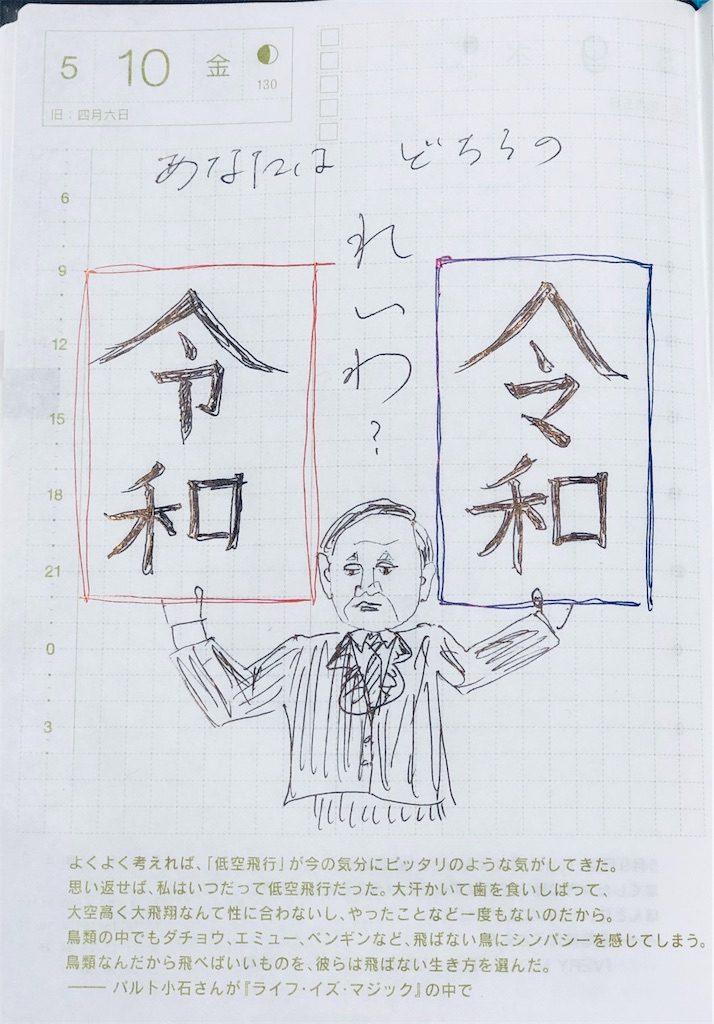 5 10 金
130
旧：四月六日
あなたは どちらの
れいわ？
令和
令和
6
9
12
15
18
21
0
3
よくよく考えれば、「低空飛行」が今の気分にピッタリのような気がしてきた。
思い返せば、私はいつだって低空飛行だった。大汗かいて歯を食いしばって、
大空高く大飛翔なんて性に合わないし、やったことなど一度もないのだから。
鳥類の中でもダチョウ、エミュー、ペンギンなど、飛ばない鳥にシンパシーを感じてしまう。
鳥類なんだから飛べばいいものを、彼らは飛ばない生き方を選んだ。
―― パルト小石さんが『ライフ・イズ・マジック』の中で